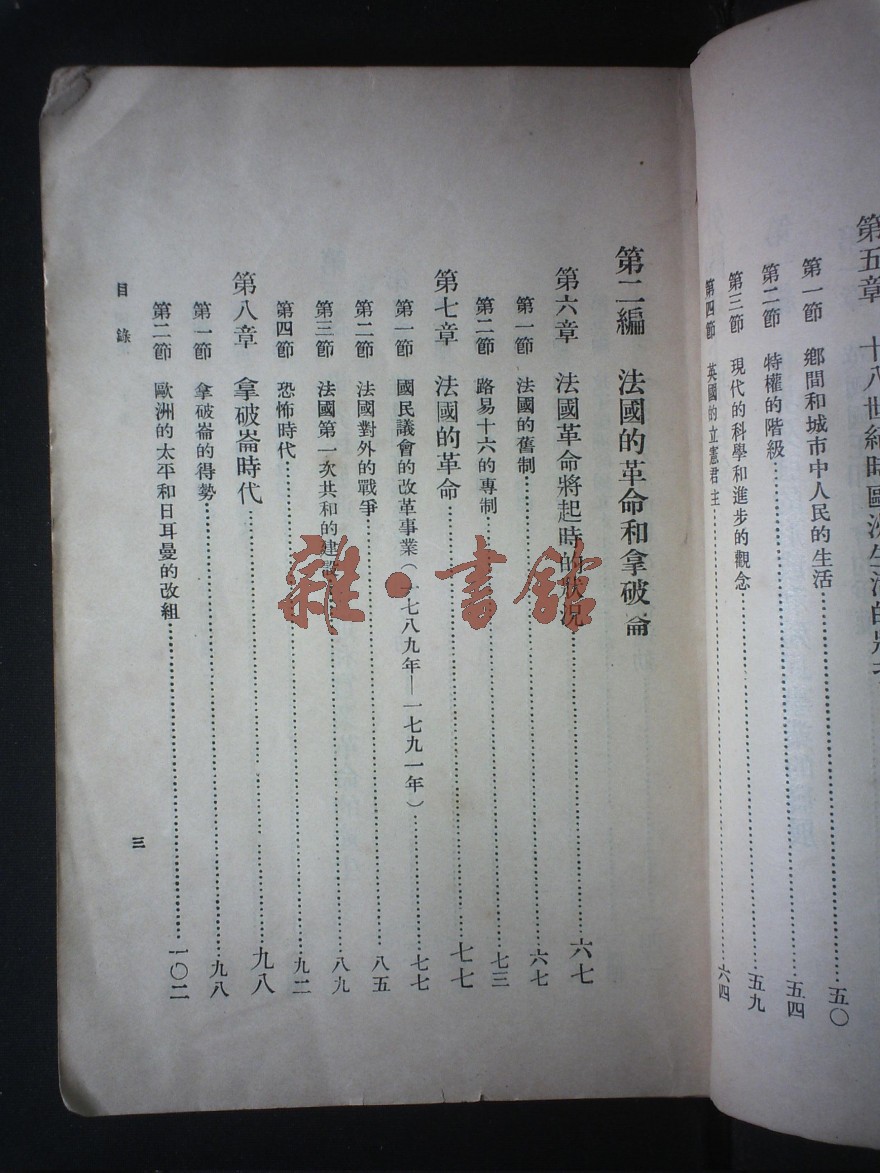 第五章 十八世紀時歐洲生活的狀
第一節 鄉間和城市中人民的生活……五〇
第二節 特權的階級……五四
第三節 現代的科學和進步的觀念……五九
第四節 英國的立憲君主……六四
第二編 法國的革命和拿破崙
第六章 法國革命將起時的狀況……六七
第一節 法國的舊制……六七
第二節 路易十六的專制……七三
第七章 法國的革命……七七
第一節 國民議會的改革事業(一七八九年—一七九一年)……七七
第二節 法國對外的戰爭……八五
第三節 法國第一次共和的建設……八九
第四節 恐怖時代……九二
第八章 拿破崙時代……九八
第一節 拿破崙的得勢……九八
第二節 歐洲的太平和日耳曼的改組……一〇二
目錄
三
雜·書館